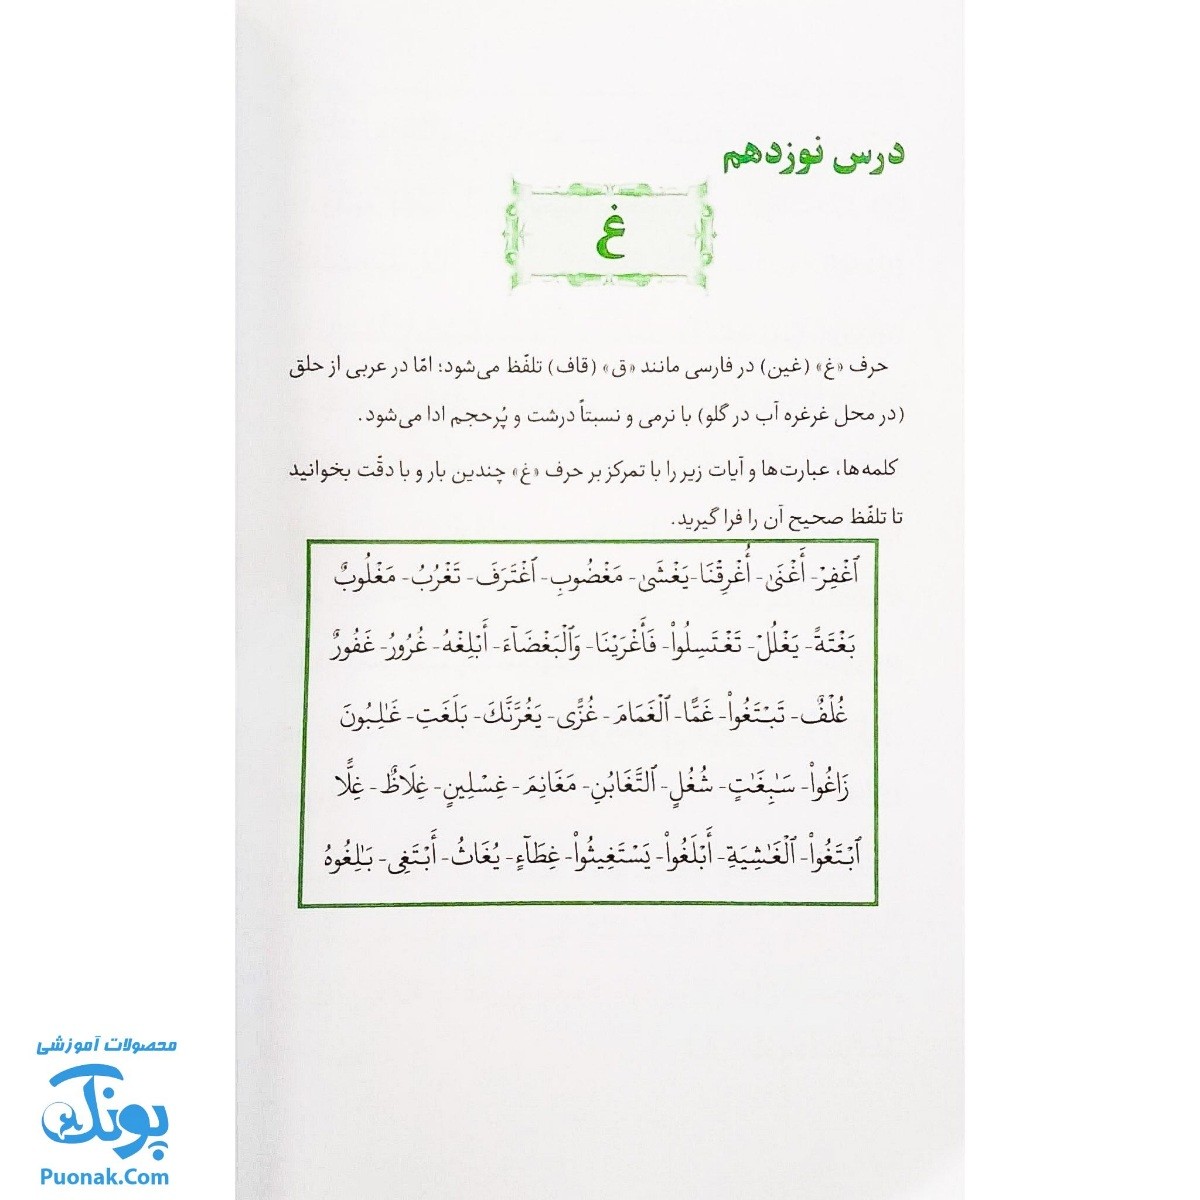 درس نوزدهم
غ
حرف «غ» (غین) در فارسی مانند «ق» (قاف) تلفّظ می‌شود؛ امّا در عربی از حلق
(در محل غرغره آب در گلو) با نرمی و نسبتاً درشت و پُرحجم ادا می‌شود.
کلمه‌ها، عبارت‌ها و آیات زیر را با تمرکز بر حرف «غ» چندین بار و با دقّت بخوانید
تا تلفّظ صحیح آن را فرا گیرید.
ٱغْفِرْ- أَغْنَىٰ- أُغْرِقْنَا- يَغْشَىٰ- مَغْضُوبِ- ٱغْتَرَفَ- تَغْرُبُ- مَغْلُوبٌ
بَغْتَةً- يَغْلُلْ- تَغْتَسِلُواْ- فَأَغْرَيْنَا- وَٱلْبَغْضَآءَ- أَبْلِغْهُ- غُرُورُ- غَفُورٌ
غُلْفٌ- تَبْتَغُواْ- غَمًّا- ٱلْغَمَامَ- غُزًّى- يَغُرَّنَّكَ- بَلَغَتِ- غَـٰلِبُونَ
زَاغُواْ- سَـٰبِغَـٰتٍ- شُغُلٍ- ٱلتَّغَابُنِ- مَغَانِمَ- غِسْلِينٍ- غِلَاظٌ- غِلًّا
ٱبْتَغُواْ- ٱلْغَـٰشِيَةِ- أَبْلَغُواْ- يَسْتَغِيثُواْ- غِطَآءٍ- يُغَاثُ- أَبْتَغِى- بَـٰلِغُوهُ
محصولات آموزشی
پونک
Puonak.Com